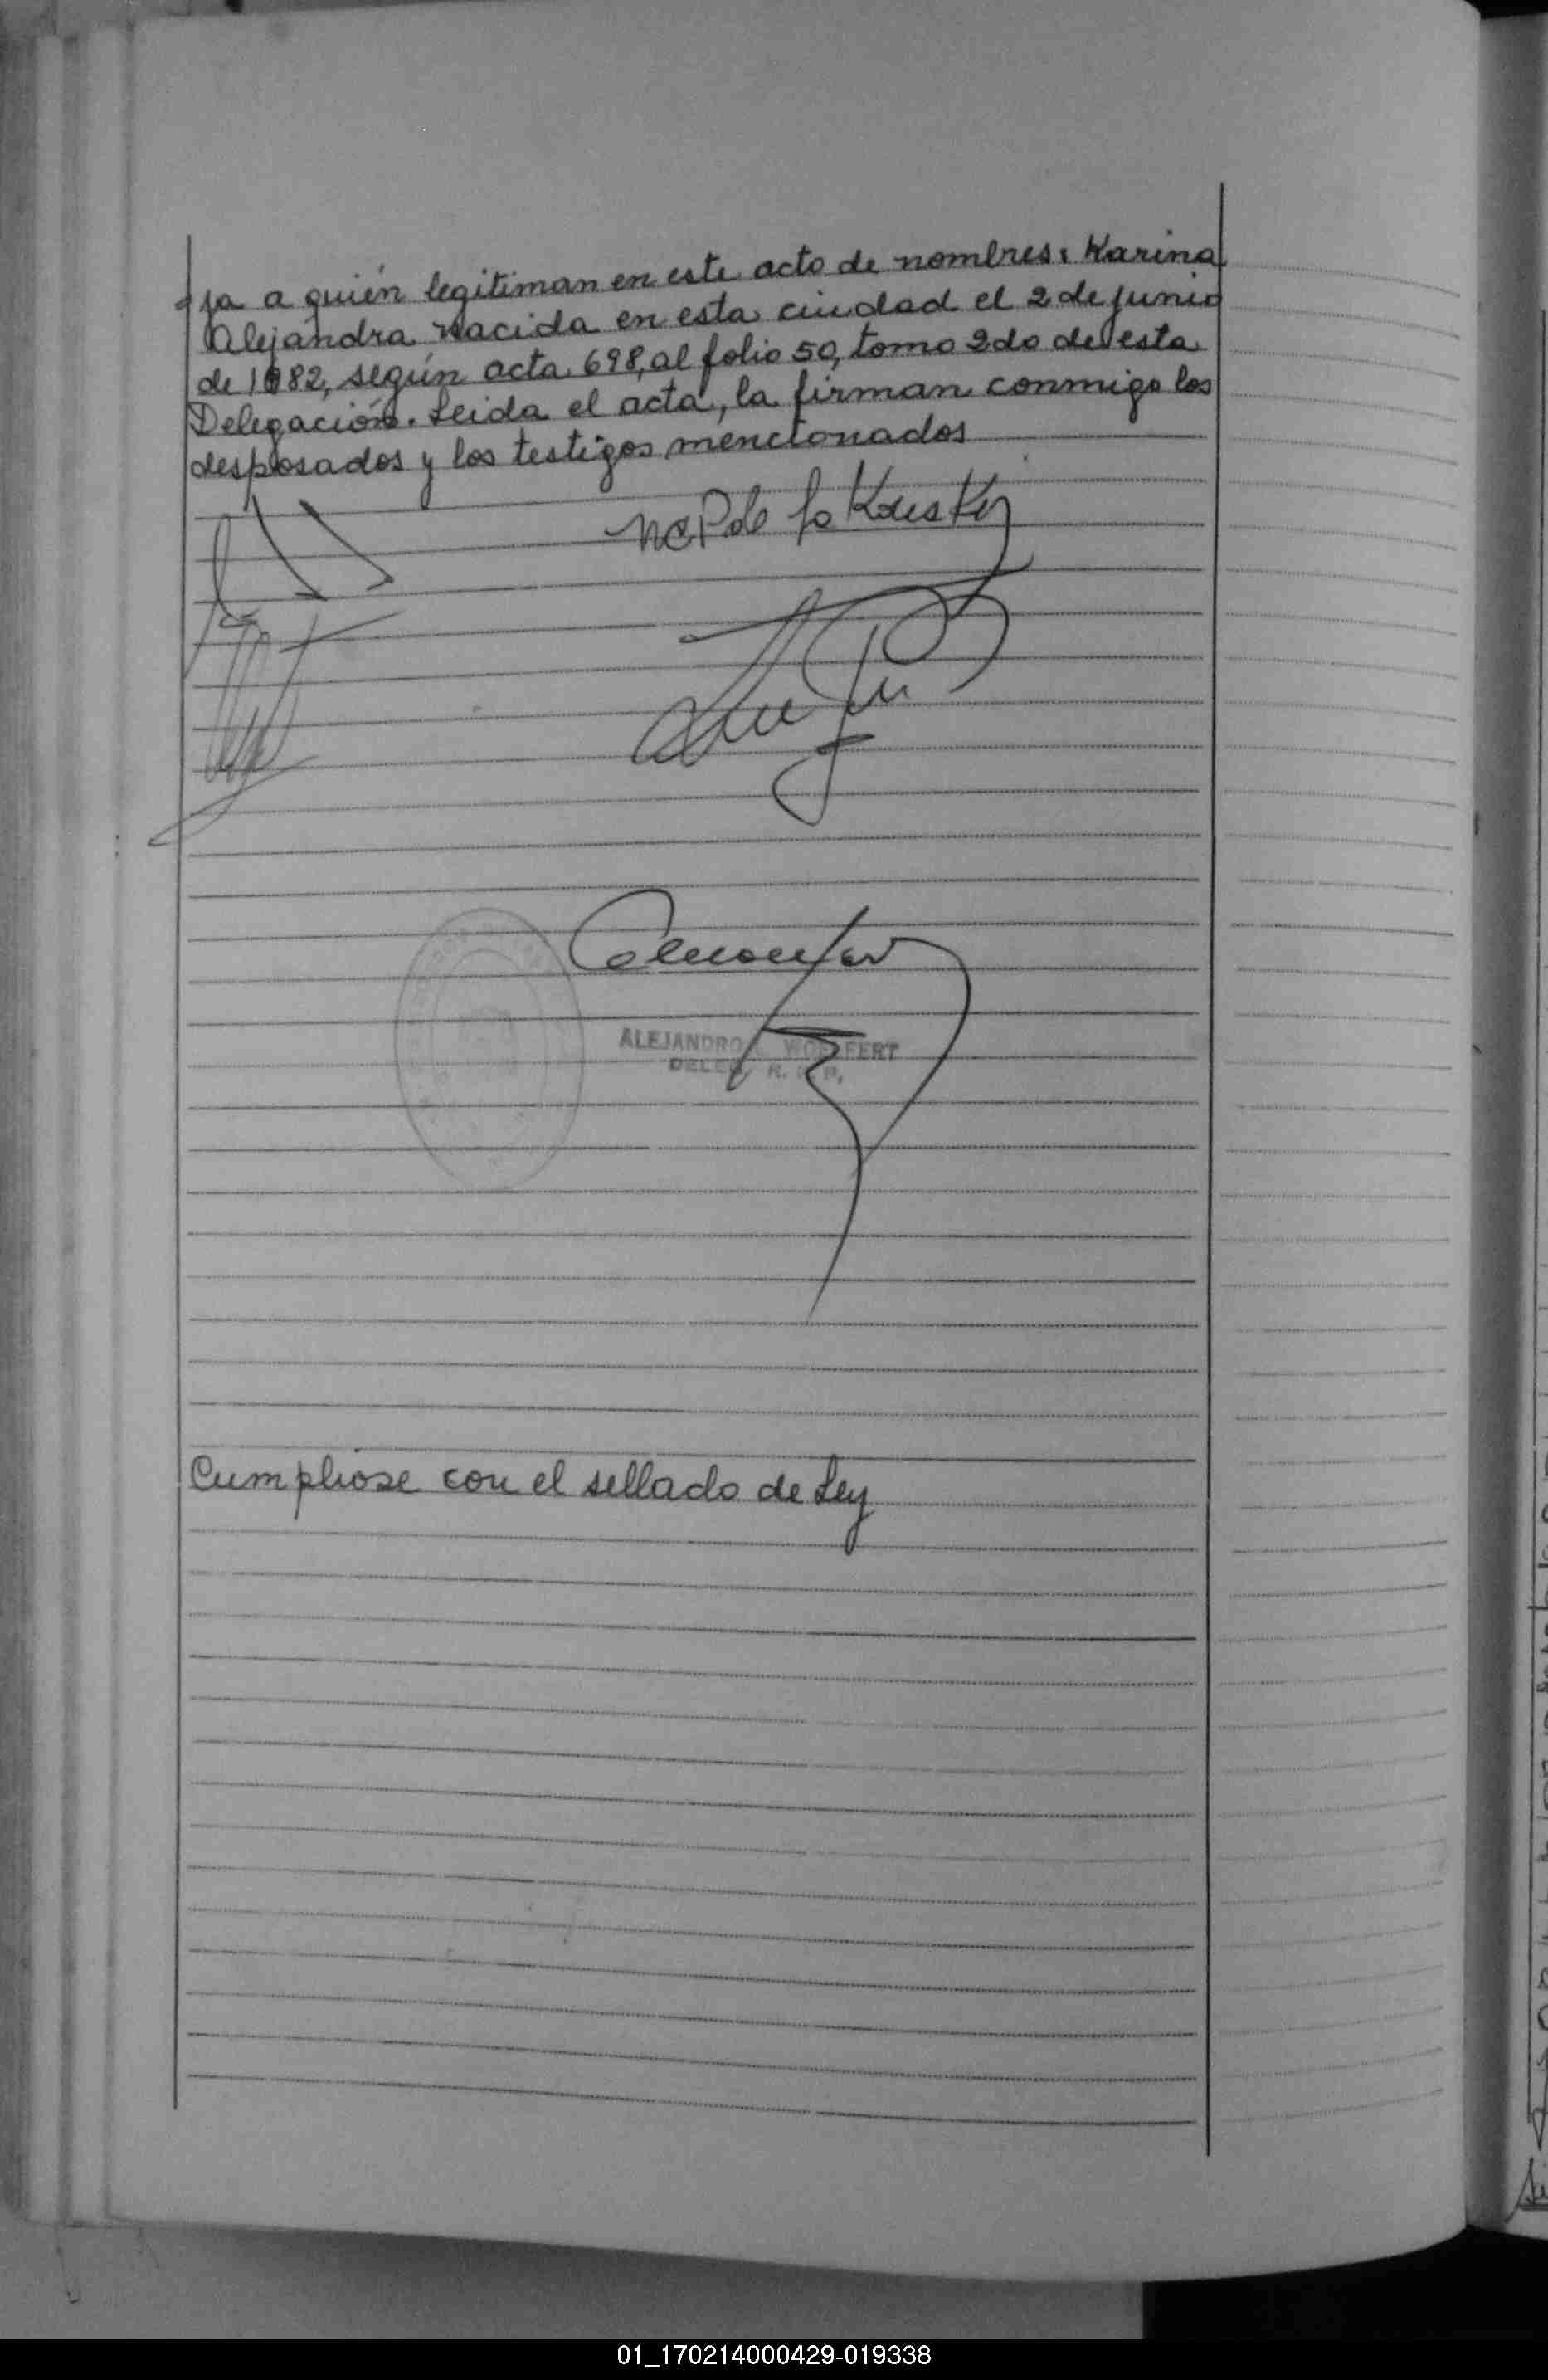 ja a quién legitiman en este acto de nombres: Karina
Alejandra nacida en esta ciudad el 2 de junio
de 1982, según acta 698, al folio 50, tomo 2do de esta
Delegación. Leida el acta, la firman conmigo los
desposados y los testigos mencionados
ALEJANDRO WOLFERT
DELEG. R. C. P.
Cumpliose con el sellado de Ley
01_170214000429-019338